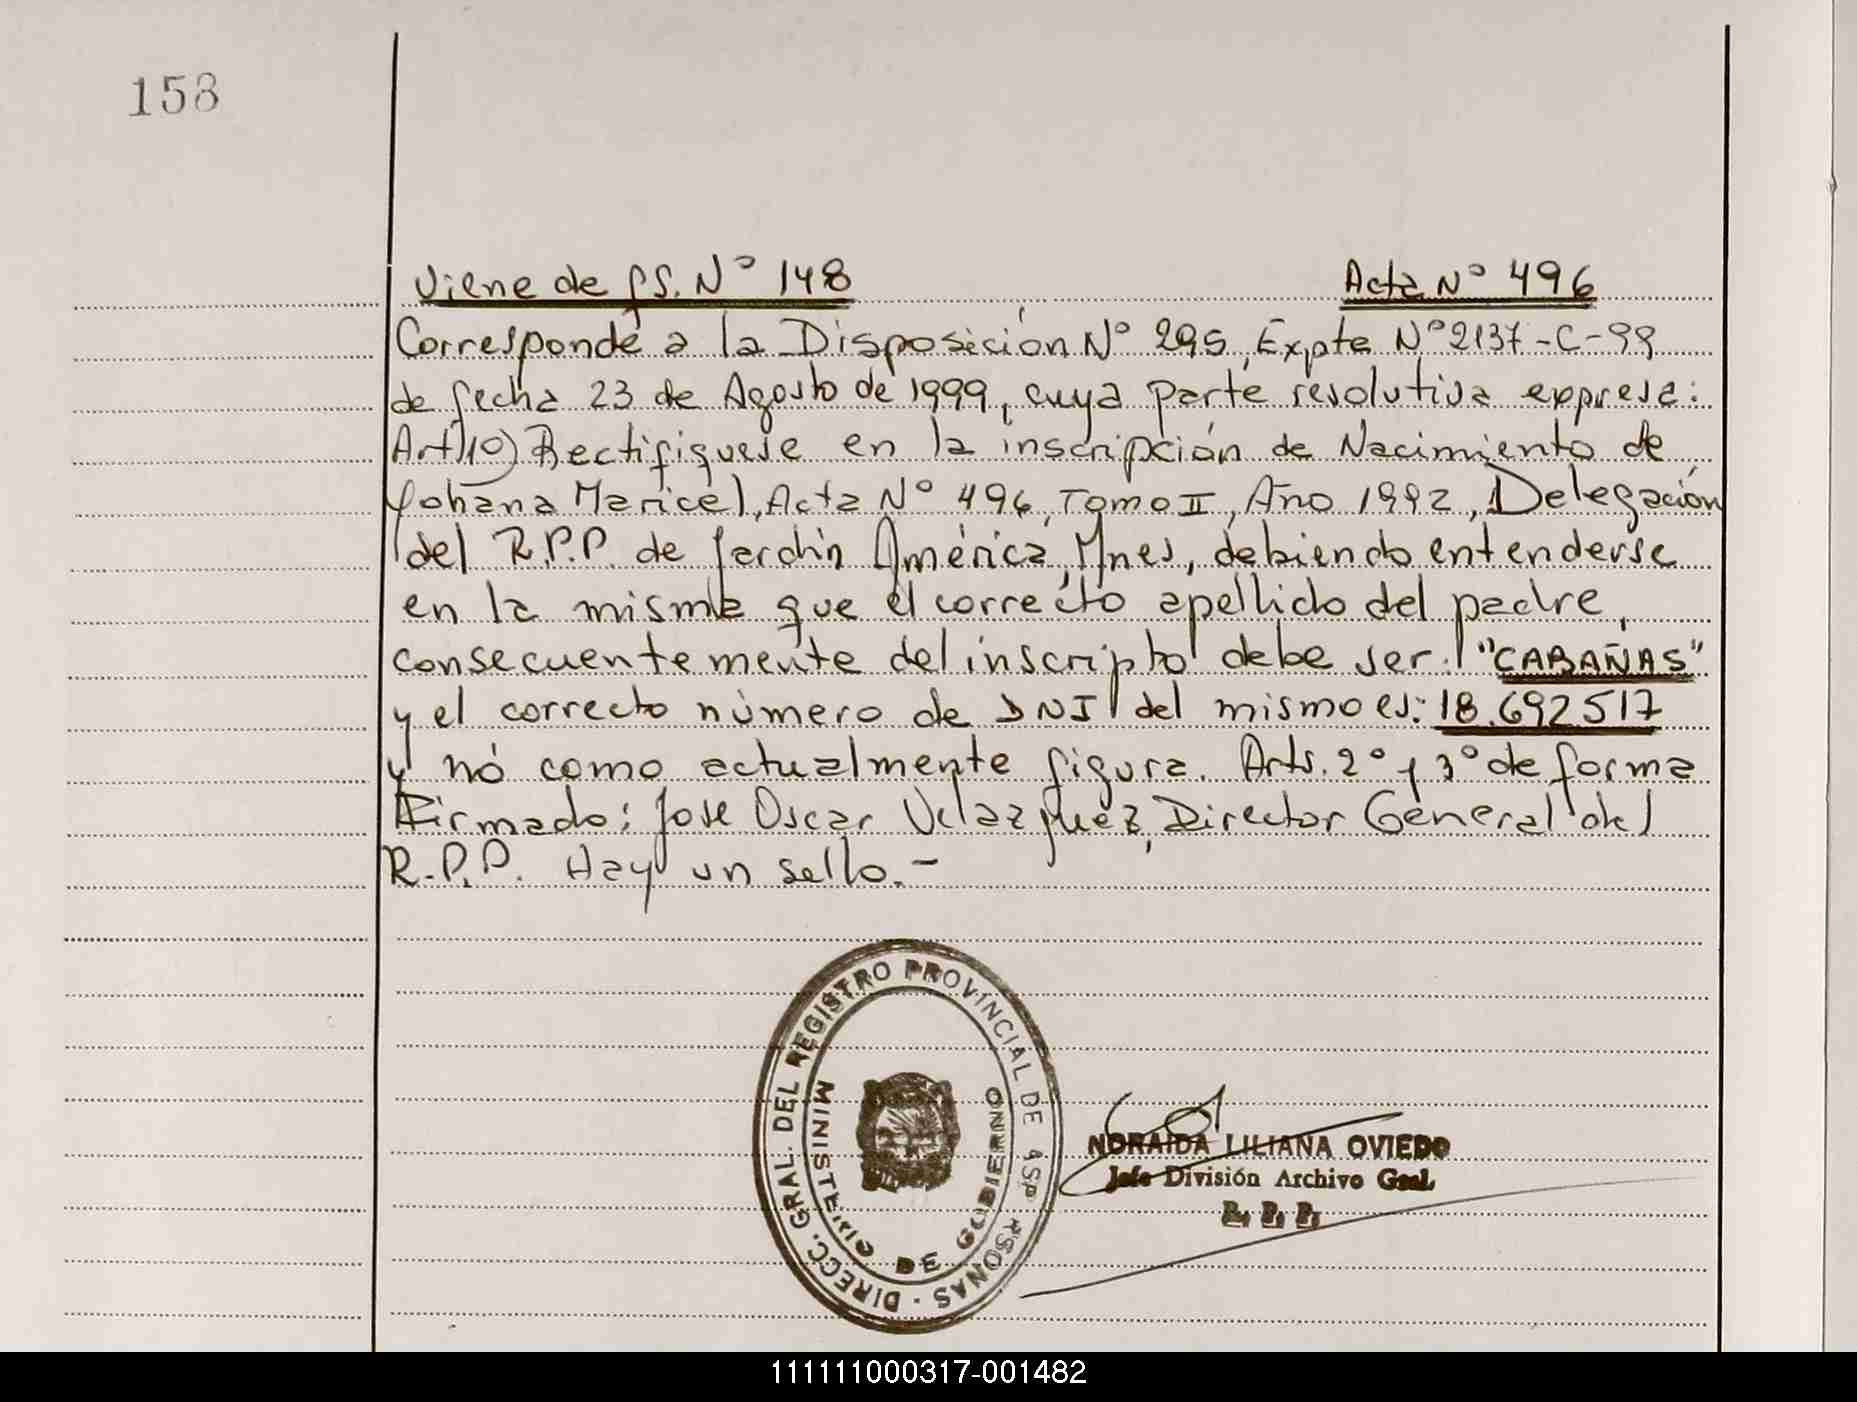 158
Viene de fs. Nº 148
Acta Nº 496
Corresponde a la Disposición Nº 295, Expte Nº 2137-C-99
de fecha 23 de Agosto de 1999, cuya parte resolutiva expresa:
Art) 1º) Rectifiquese en la inscripción de Nacimiento de
Yohana Maricel, Acta Nº 496, Tomo II, Año 1992, Delegación
del R.P.P. de Jardín América, Mnes, debiendo entenderse
en la misma que el correcto apellido del padre,
consecuentemente del inscripto debe ser: "CABAÑAS"
y el correcto número de DNI del mismo es: 18.692517
y nó como actualmente figura. Arts. 2º y 3º de forma
Firmado: Jose Oscar Velazquez, Director General del
R.P.P. Hay un sello.-
DIRECC. GRAL. DEL REGISTRO PROVINCIAL DE
MINISTERIO DE GOBIERNO
NORAIDA LILIANA OVIEDO
Jefe División Archivo Gral.
R. P. P.
111111000317-001482